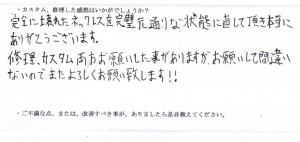 ・カスタム、修理した感想はいかがでしょうか？
完全に壊れたネックレスを完璧元通りな状態に直して頂き本当に
ありがとうございます。
修理、カスタム両方お願いした事がありますが、お願いして間違い
ないのでまたよろしくお願い致します!!
・ご不満な点、または、改善すべき事が、ありましたら是非教えてください。